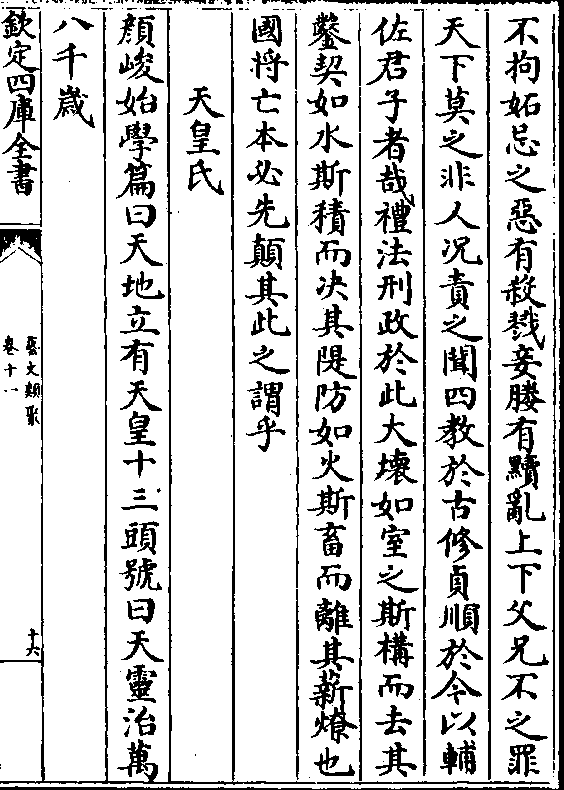 不拘妬忌之惡有殺戮妾媵有黷亂上下父兄不之罪
天下莫之非人况責之聞四教於古修貞順於今以輔
佐君子者哉禮法刑政於此大壊如室之斯構而去其
鑿契如水斯積而决其隄防如火斯畜而離其薪燎也
國将亡本必先顛其此之謂乎
天皇氏
顔峻始學篇曰天地立有天皇十三頭號曰天靈治萬
八千歳
欽定四庫全書
藝文類聚
卷十一
十六